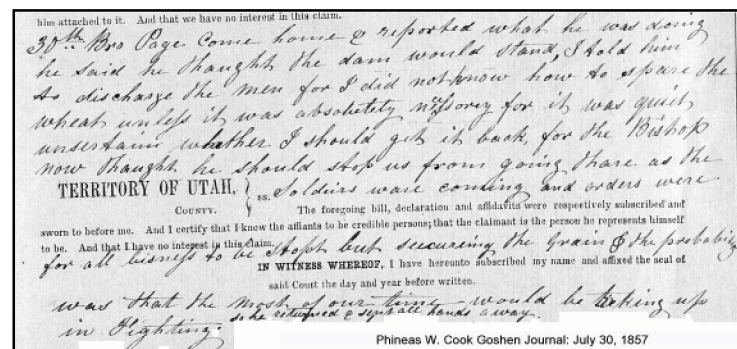 him attached to it. And that we have no interest in this claim.
30th Bro Page come home & reported what he was doing
he said he thaught the dam would stand, I told him
to discharge the men for I did not know how to spare the
wheat unless it was absolutety nessorey for it was quiet
unsertain whether I should get it back, for the Bishop
now thaught he should stop us from going thare as the
TERRITORY OF UTAH, } ss. Soldeirs ware coming and orders were
COUNTY. The foregoing bill, declaration and affidavits were respectively subscribed and
sworn to before me. And I certify that I know the affiants to be credible persons; that the claimant is the person he represents himself
to be. And that I have no interest in this claim.
for all bisness to be stopt but seucureing the Grain & the probability
IN WITNESS WHEREOF, I have hereunto subscribed my name and affixed the seal of
said Court the day and year before written.
was that the most of our time would be taking up
in Fighting. so he returned & sent all hands away.
Phineas W. Cook Goshen Journal: July 30, 1857